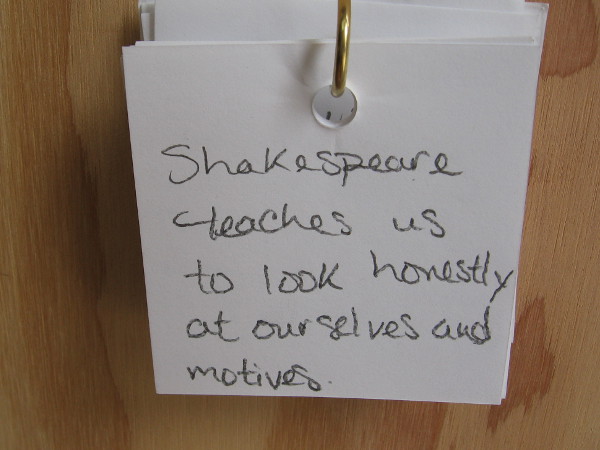 Shakespeare
teaches us
to look honestly
at ourselves and
motives.